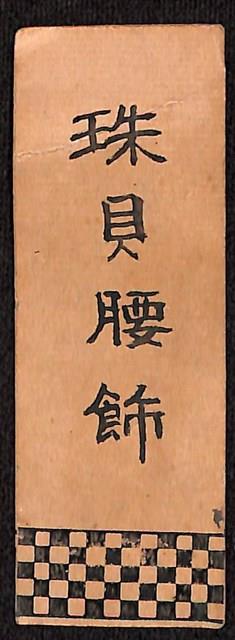 珠貝腰飾